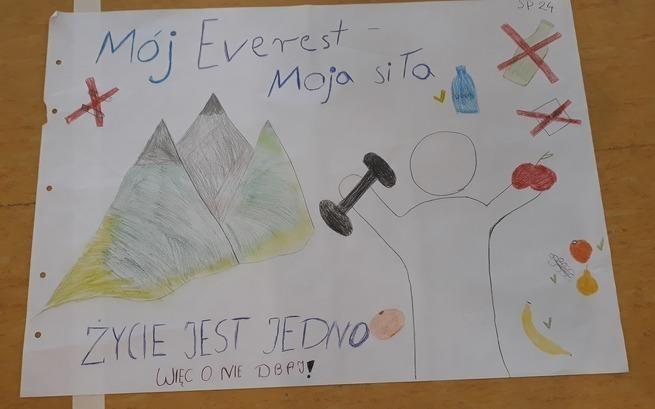 SP 24
Mój Everest -
Moja siła
ŻYCIE JEST JEDNO
WIĘC O NIE DBAJ!